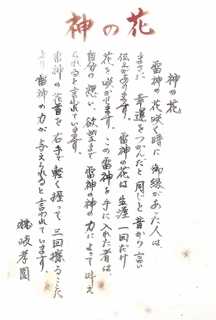 神の花
神の花
雷神の花咲く時に御縁があった人は、
までに幸運をつかんだと同じと昔から言い
伝えがあります。雷神の花は生涯一回だけ
花を咲かせます。この雷神を手に入れた者は、
自分の想い、欲望まで雷神の神の力によって叶え
られると言われています。
雷神の花茎を右手で軽く握って三回擦ることに
より雷神の力が与えられると言われています。